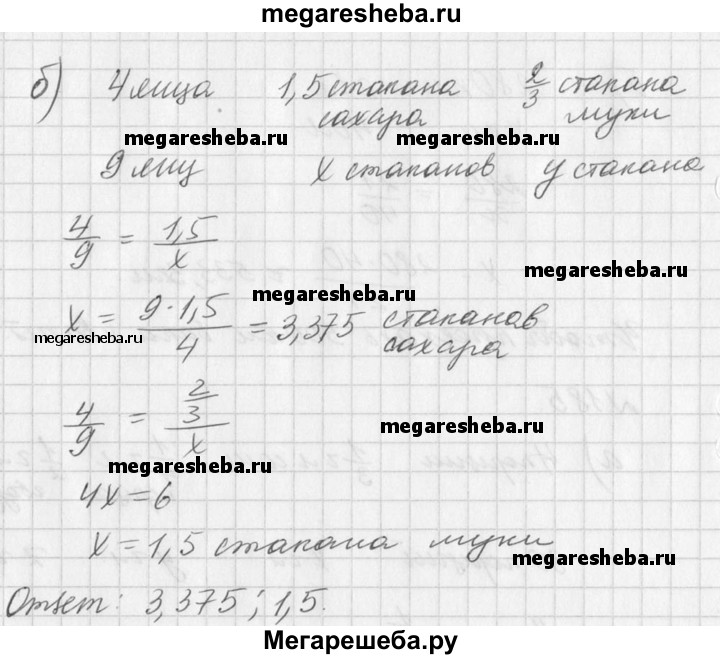 megaresheba.ru
б) 4 яйца 1,5 стакана сахара 2/3 стакана муки
megaresheba.ru megaresheba.ru
9 яиц x стаканов y стакана
4/9 = 1,5/x
megaresheba.ru
megaresheba.ru
x = 9·1,5/4 = 3,375 стаканов сахара
megaresheba.ru
4/9 = 2/3/x
megaresheba.ru
megaresheba.ru
4x = 6
x = 1,5 стакана муки
megaresheba.ru
Ответ: 3,375; 1,5.
Мегарешеба.ру